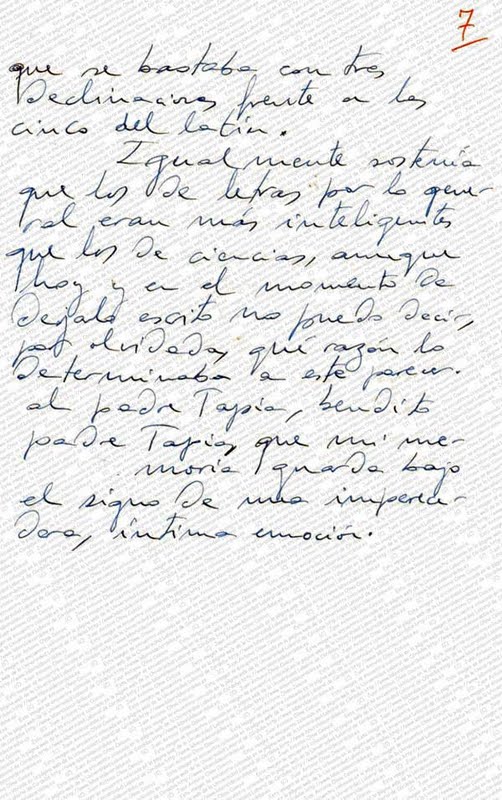 7
que se bastaba con tres
declinaciones frente a las
cinco del latín.
Igualmente sostenía
que los de letras por lo gene-
ral eran más inteligentes
que los de ciencias, aunque
hoy y en el momento de
dejalo escrito no puedo decir,
por olvidada, qué razón lo
determinaba a este parecer.
al padre Tapia, bendito
padre Tapia, que mi me-
moria guarda bajo
el signo de una imperece-
dera, íntima emoción.